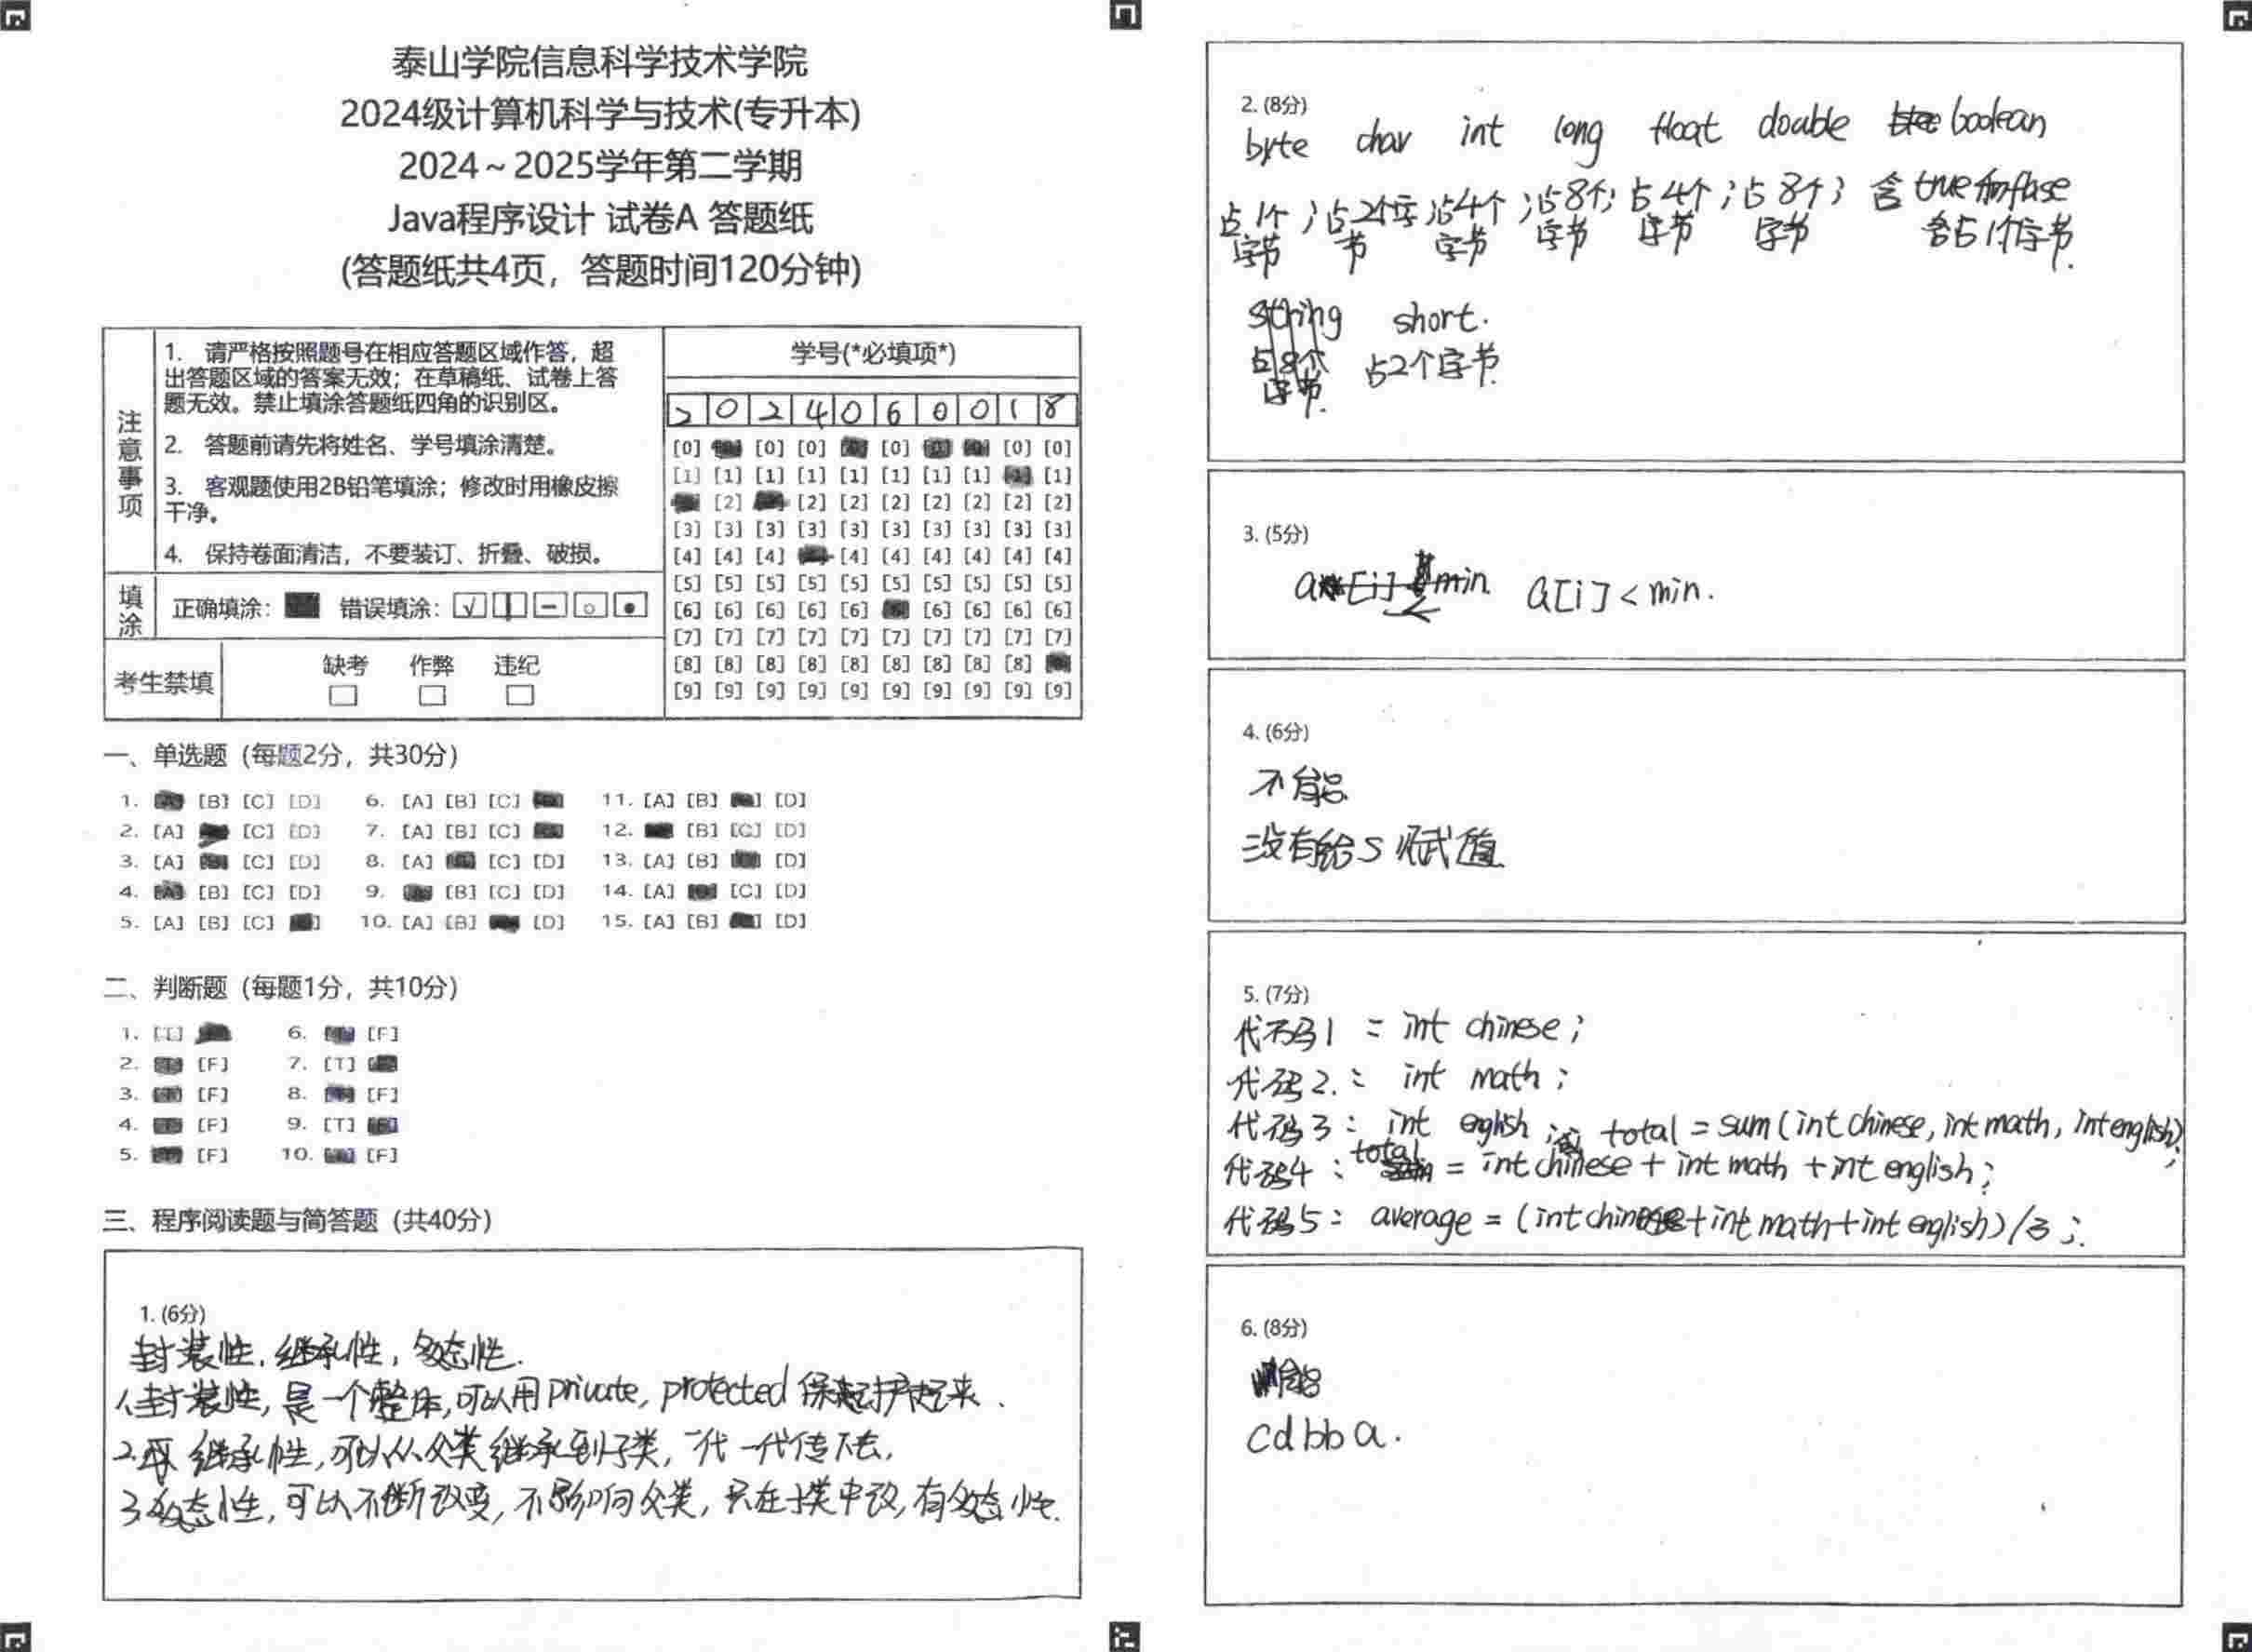 泰山学院信息科学技术学院
2024级计算机科学与技术(专升本)
2024～2025学年第二学期
Java程序设计 试卷A 答题纸
(答题纸共4页，答题时间120分钟)
注意事项
1. 请严格按照题号在相应答题区域作答，超
出答题区域的答案无效；在草稿纸、试卷上答
题无效。禁止填涂答题纸四角的识别区。
2. 答题前请先将姓名、学号填涂清楚。
3. 客观题使用2B铅笔填涂；修改时用橡皮擦
干净。
4. 保持卷面清洁，不要装订、折叠、破损。
填涂
正确填涂： 错误填涂：
考生禁填
缺考 作弊 违纪
学号(*必填项*)
2 0 2 4 0 6 0 0 1 8
[0] [0] [0] [0] [0] [0]
[1] [1] [1] [1] [1] [1] [1] [1] [1]
[2] [2] [2] [2] [2] [2] [2] [2]
[3] [3] [3] [3] [3] [3] [3] [3] [3] [3]
[4] [4] [4] [4] [4] [4] [4] [4] [4]
[5] [5] [5] [5] [5] [5] [5] [5] [5] [5]
[6] [6] [6] [6] [6] [6] [6] [6] [6]
[7] [7] [7] [7] [7] [7] [7] [7] [7] [7]
[8] [8] [8] [8] [8] [8] [8] [8] [8]
[9] [9] [9] [9] [9] [9] [9] [9] [9] [9]
一、单选题（每题2分，共30分）
1. [B] [C] [D] 6. [A] [B] [C] 11. [A] [B] [D]
2. [A] [C] [D] 7. [A] [B] [C] 12. [B] [C] [D]
3. [A] [C] [D] 8. [A] [C] [D] 13. [A] [B] [D]
4. [B] [C] [D] 9. [B] [C] [D] 14. [A] [C] [D]
5. [A] [B] [C] 10. [A] [B] [D] 15. [A] [B] [D]
二、判断题（每题1分，共10分）
1. [T] 6. [F]
2. [F] 7. [T]
3. [F] 8. [F]
4. [F] 9. [T]
5. [F] 10. [F]
三、程序阅读题与简答题（共40分）
1. (6分)
封装性，继承性，多态性.
1.封装性，是一个整体，可以用private, protected 保护起来.
2. 继承性，可以从父类继承到子类，一代一代传下去，
3.多态性，可以不断改变，不影响父类，只在子类中改，有多态性.
2. (8分)
byte char int long float double boolean
占1个字节；占2个字节；占4个字节；占8个字节；占4个字节；占8个字节；含true和flase
占1个字节.
string short.
占8个字节. 占2个字节.
3. (5分)
a[i] min a[i]<min.
4. (6分)
不能
没有给S赋值
5. (7分)
代码1 : int chinese;
代码2.: int math;
代码3: int english; total = sum(int chinese, int math, int english);
代码4: total = int chinese + int math + int english;
代码5: average = (int chinese+int math+int english)/3;.
6. (8分)
能
cdbba.